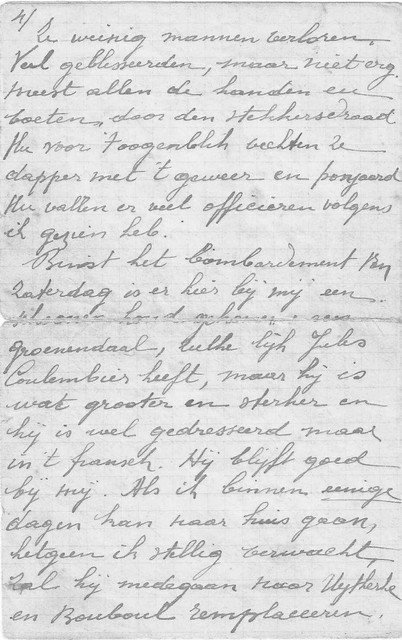 4/
Ze weinig mannen verloren,
Veel geblesseerden, maar niet erg.
meest allen de handen en
voeten, door den stekkersdraad
Nu voor 't oogenblik vechten ze
dapper met 't geweer en ponjaard
Nu vallen er veel officieren volgens
ik gezien heb.
Binst het Bombardement van
Zaterdag is er hier bij mij een
hond
groenendaal, zulke lijk Jules
Coulembier heeft, maar hij is
wat grooter en sterker en
hij is wel gedresseerd maar
in 't fransch. Hij blijft goed
bij mij. Als ik binnen eenige
dagen kan naar huis gaan,
hetgeen ik stellig verwacht,
Zal hij medegaan naar Uytkerke
en Bouboul remplaceeren.